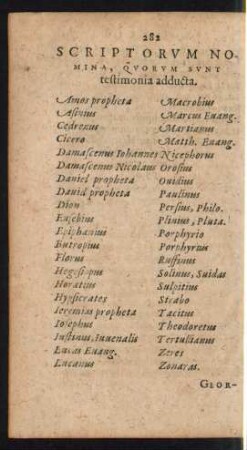 282
SCRIPTORVM NO-
MINA, QVORVM SVNT
testimonia adducta.
Amos propheta
Asinius
Cedrenus
Cicero
Damascenus Iohannes
Damascenus Nicolaus
Daniel propheta
Dauid propheta
Dion
Eusebius
Epiphanius
Eutropius
Florus
Hegesippus
Horatius
Hypsicrates
Ieremias propheta
Iosephus
Iustinus, Iuuenalis
Lucas Euang.
Lucanus
Macrobius
Marcus Euang.
Martianus
Matth. Euang.
Nicephorus
Orosius
Ouidius
Paulinus
Persius, Philo.
Plinius, Pluta.
Porphyrio
Porphyrius
Ruffinus
Solinus, Suidas
Sulpitius
Strabo
Tacitus
Theodoretus
Tertullianus
Zeres
Zonaras.
GEOR-